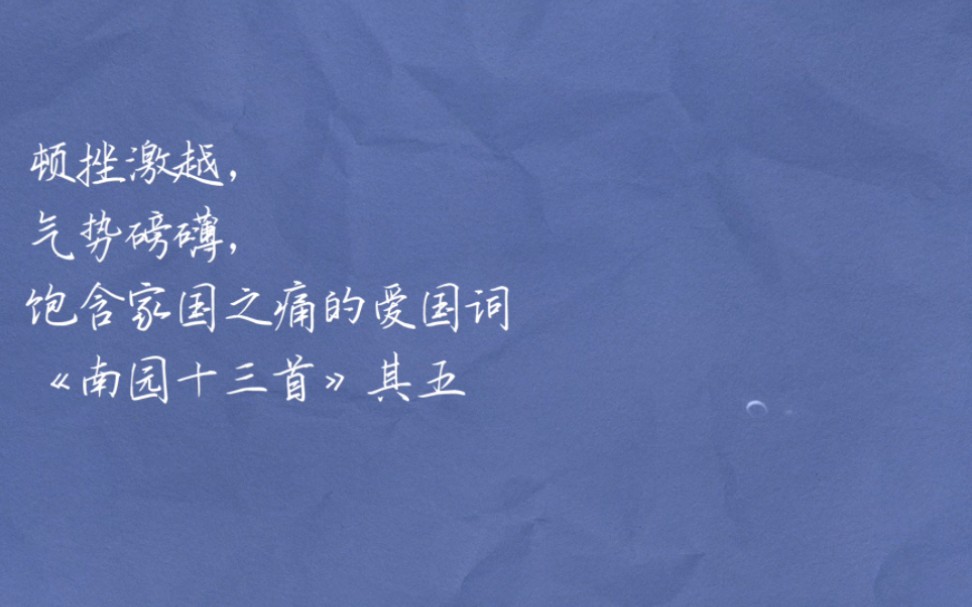 顿挫激越，
气势磅礴，
饱含家国之痛的爱国词
《南园十三首》其五